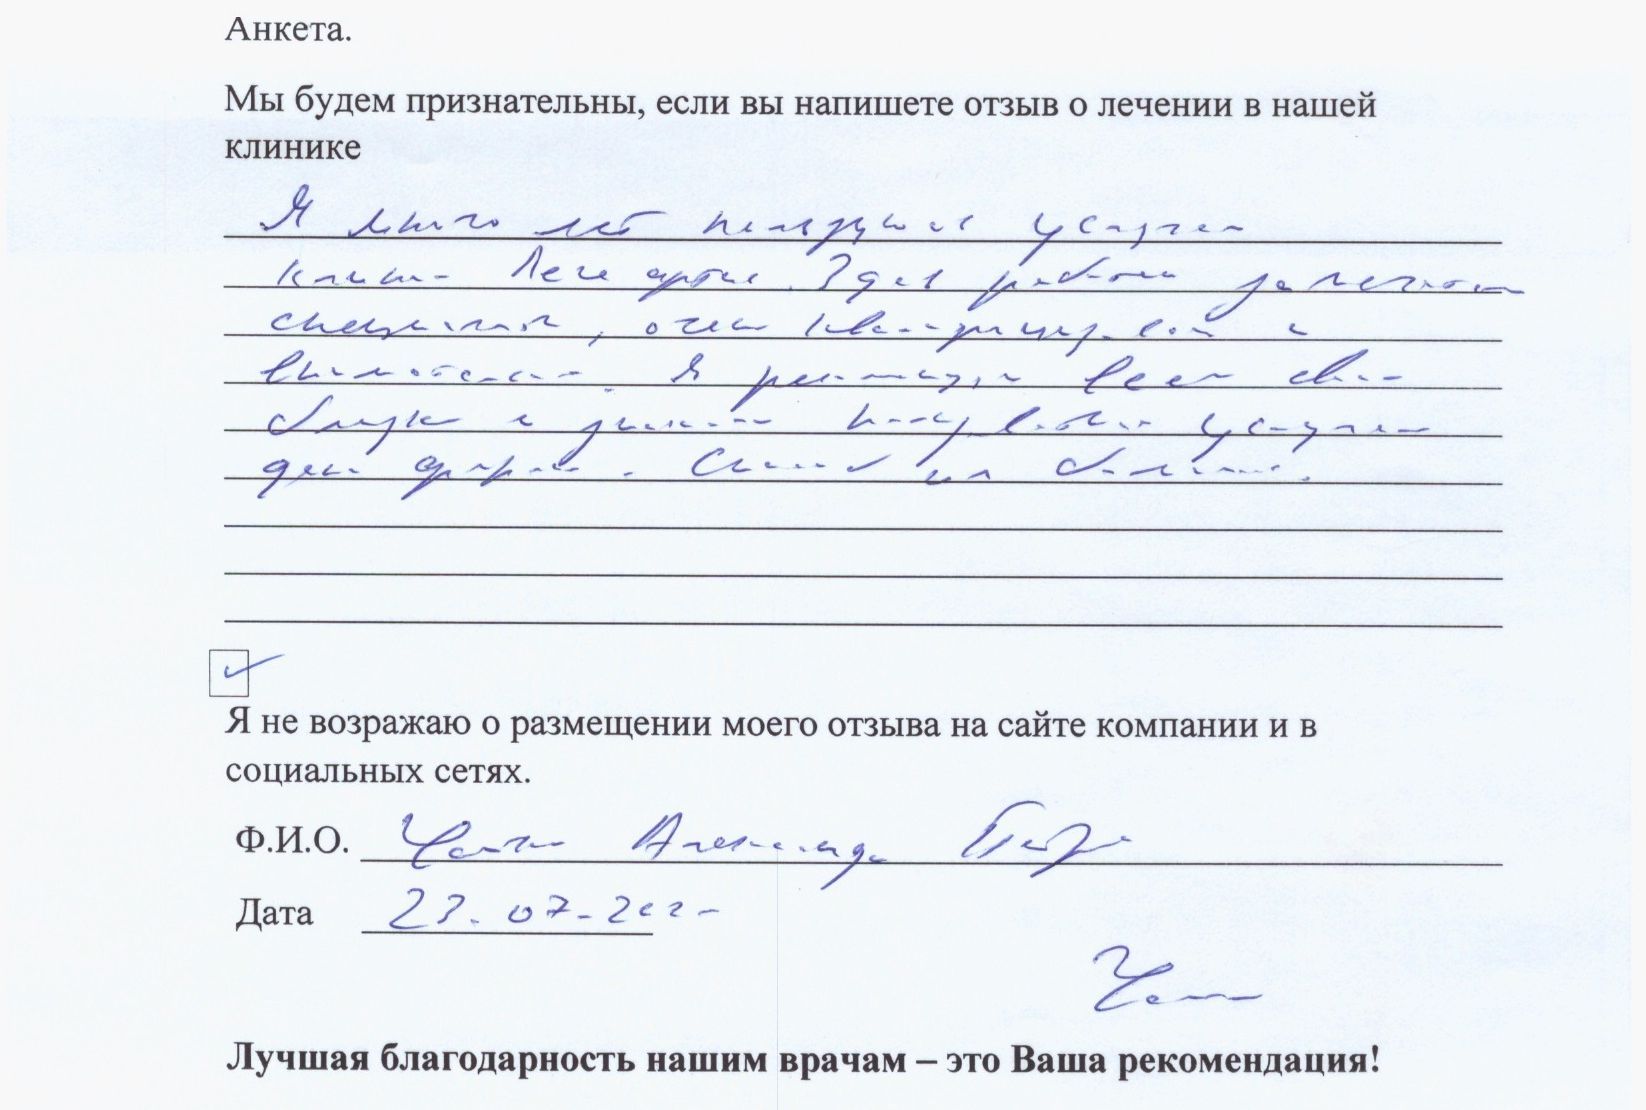 Анкета.
Мы будем признательны, если вы напишете отзыв о лечении в нашей
клинике
Я много лет пользуюсь услугами
клиники Леге артис. Здесь работают замечательные
специалисты, очень квалифицированные и
внимательные. Я рекомендую всем своим
близким и знакомым пользоваться услугами
данной фирмы. Спасибо им большое.
Я не возражаю о размещении моего отзыва на сайте компании и в
социальных сетях.
Ф.И.О. Александр
Дата 23.07.202
Лучшая благодарность нашим врачам – это Ваша рекомендация!